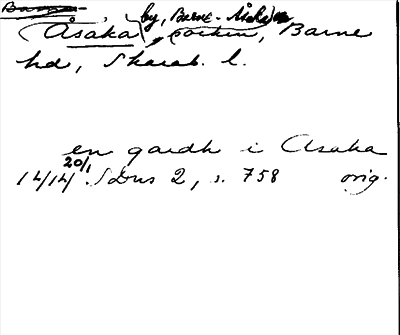 by, Barne-Åsaka
Åsaka, socken, Barne
hd, Skarab. l.
en gardh i Asaka
20/1
1414. SDns 2, s. 758 orig.